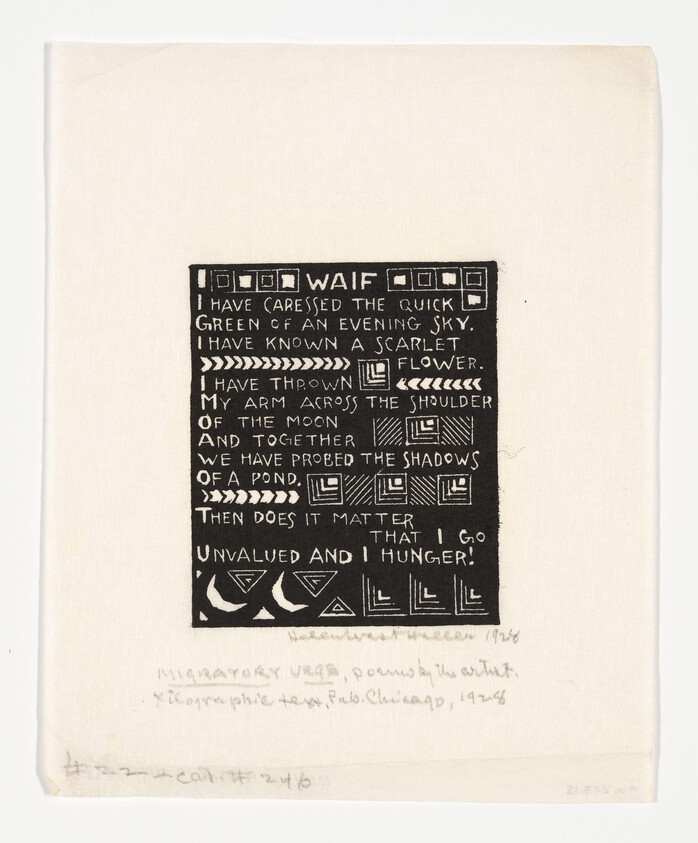 WAIF
I HAVE CARESSED THE QUICK
GREEN OF AN EVENING SKY.
I HAVE KNOWN A SCARLET
FLOWER.
I HAVE THROWN
MY ARM ACROSS THE SHOULDER
OF THE MOON
AND TOGETHER
WE HAVE PROBED THE SHADOWS
OF A POND.
THEN DOES IT MATTER
THAT I GO
UNVALUED AND I HUNGER!
Helen West Heller 1928
MIGRATORY URGE, poems by the artist.
Xilographic text, Pub. Chicago, 1928
#22 cat. # 246